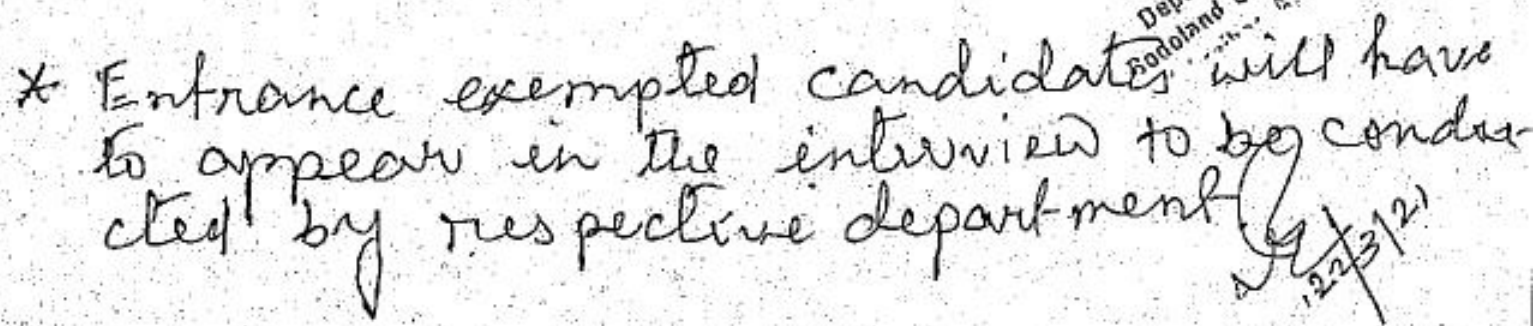 Dep
Bodoland
* Entrance exempted candidates will have
to appear in the interview to be condu-
cted by respective department
22/3/21